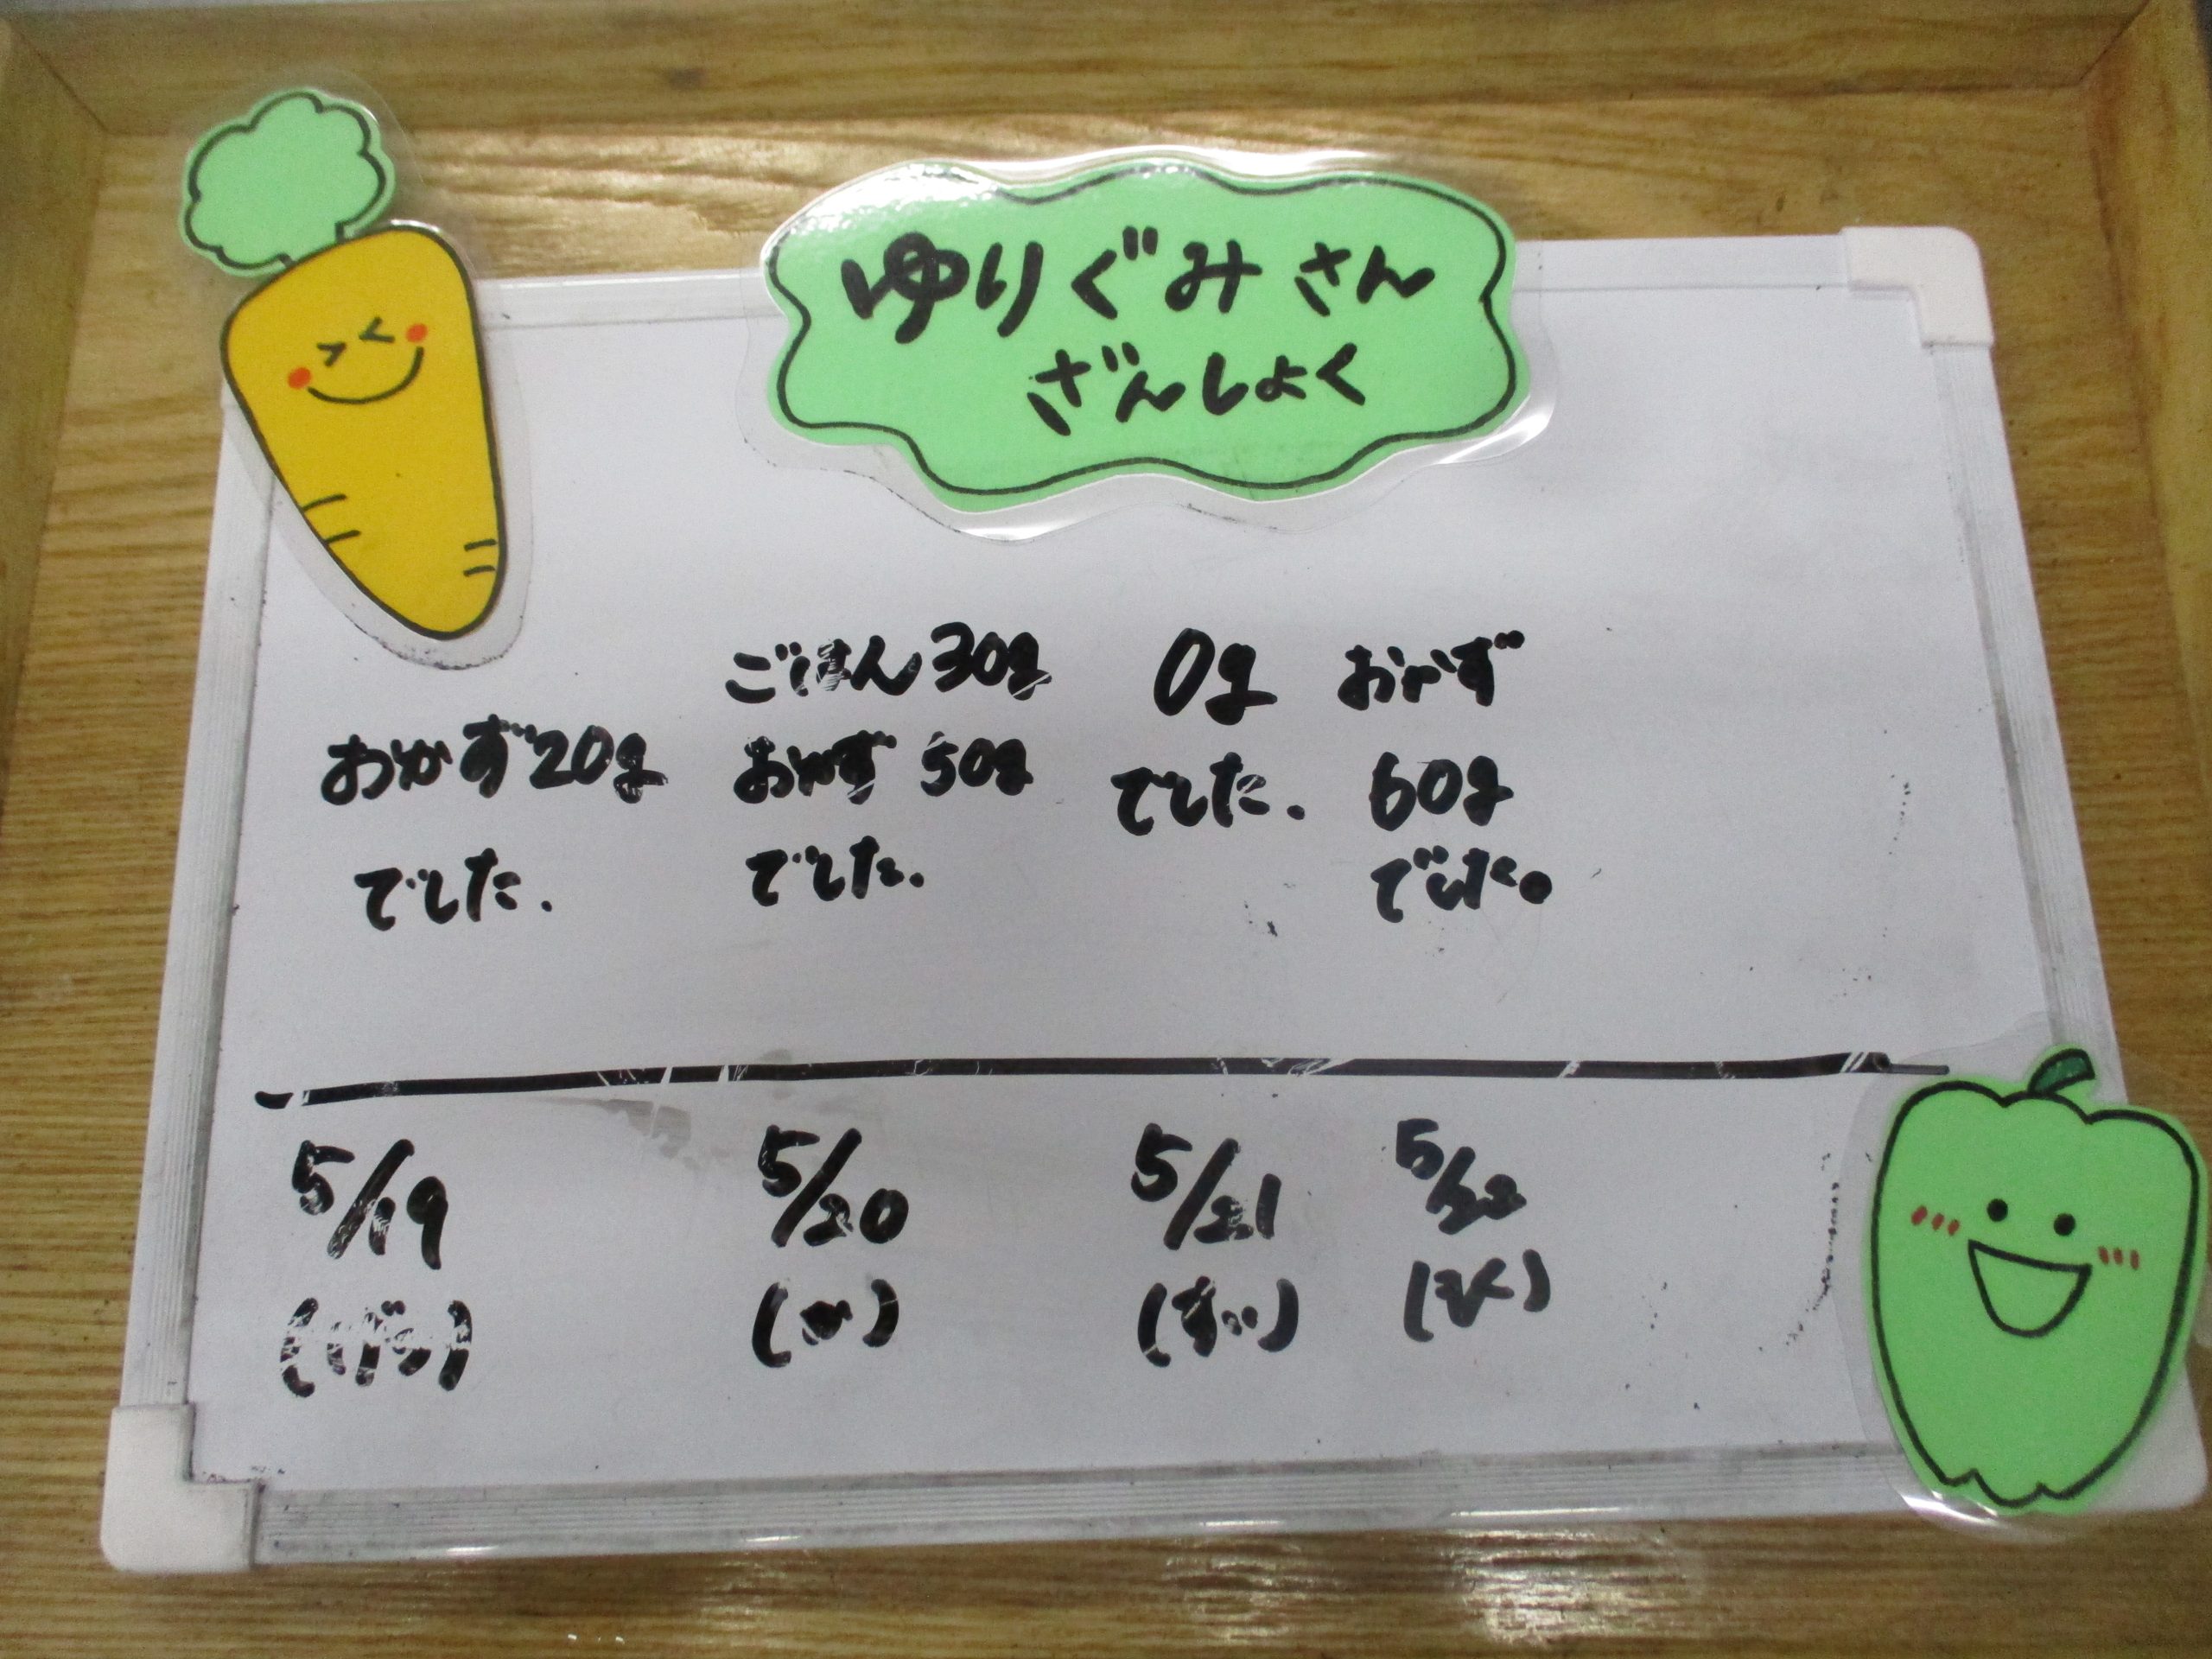 ゆりぐみさん
ざんしょく
おかず20g
でした.
ごはん30g
おかず50g
でした.
0g
でした.
おかず
60g
でした。
5/19
(げつ)
5/20
(か)
5/21
(すい)
5/22
(もく)